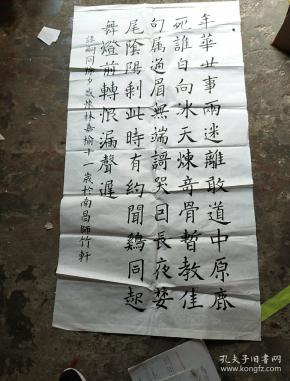 年華世事兩迷離敢道中原鹿
死誰自向冰天煉奇骨暫教佳
句属通眉無端歌哭因長夜婪
尾陰陽剩此時有約聞鷄同起
舞燈前轉恨漏聲遲
譚嗣同除夕感懷林嘉榆十一歲於南昌師竹軒
孔夫子旧书网
www.kongfz.com